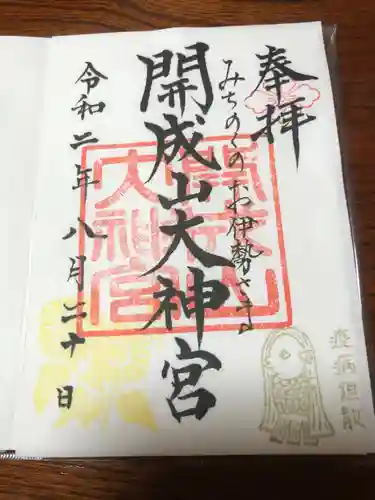 奉拝
みちのくのお伊勢さま
開成山大神宮
開成山大神宮
令和二年八月二十日
疫病退散